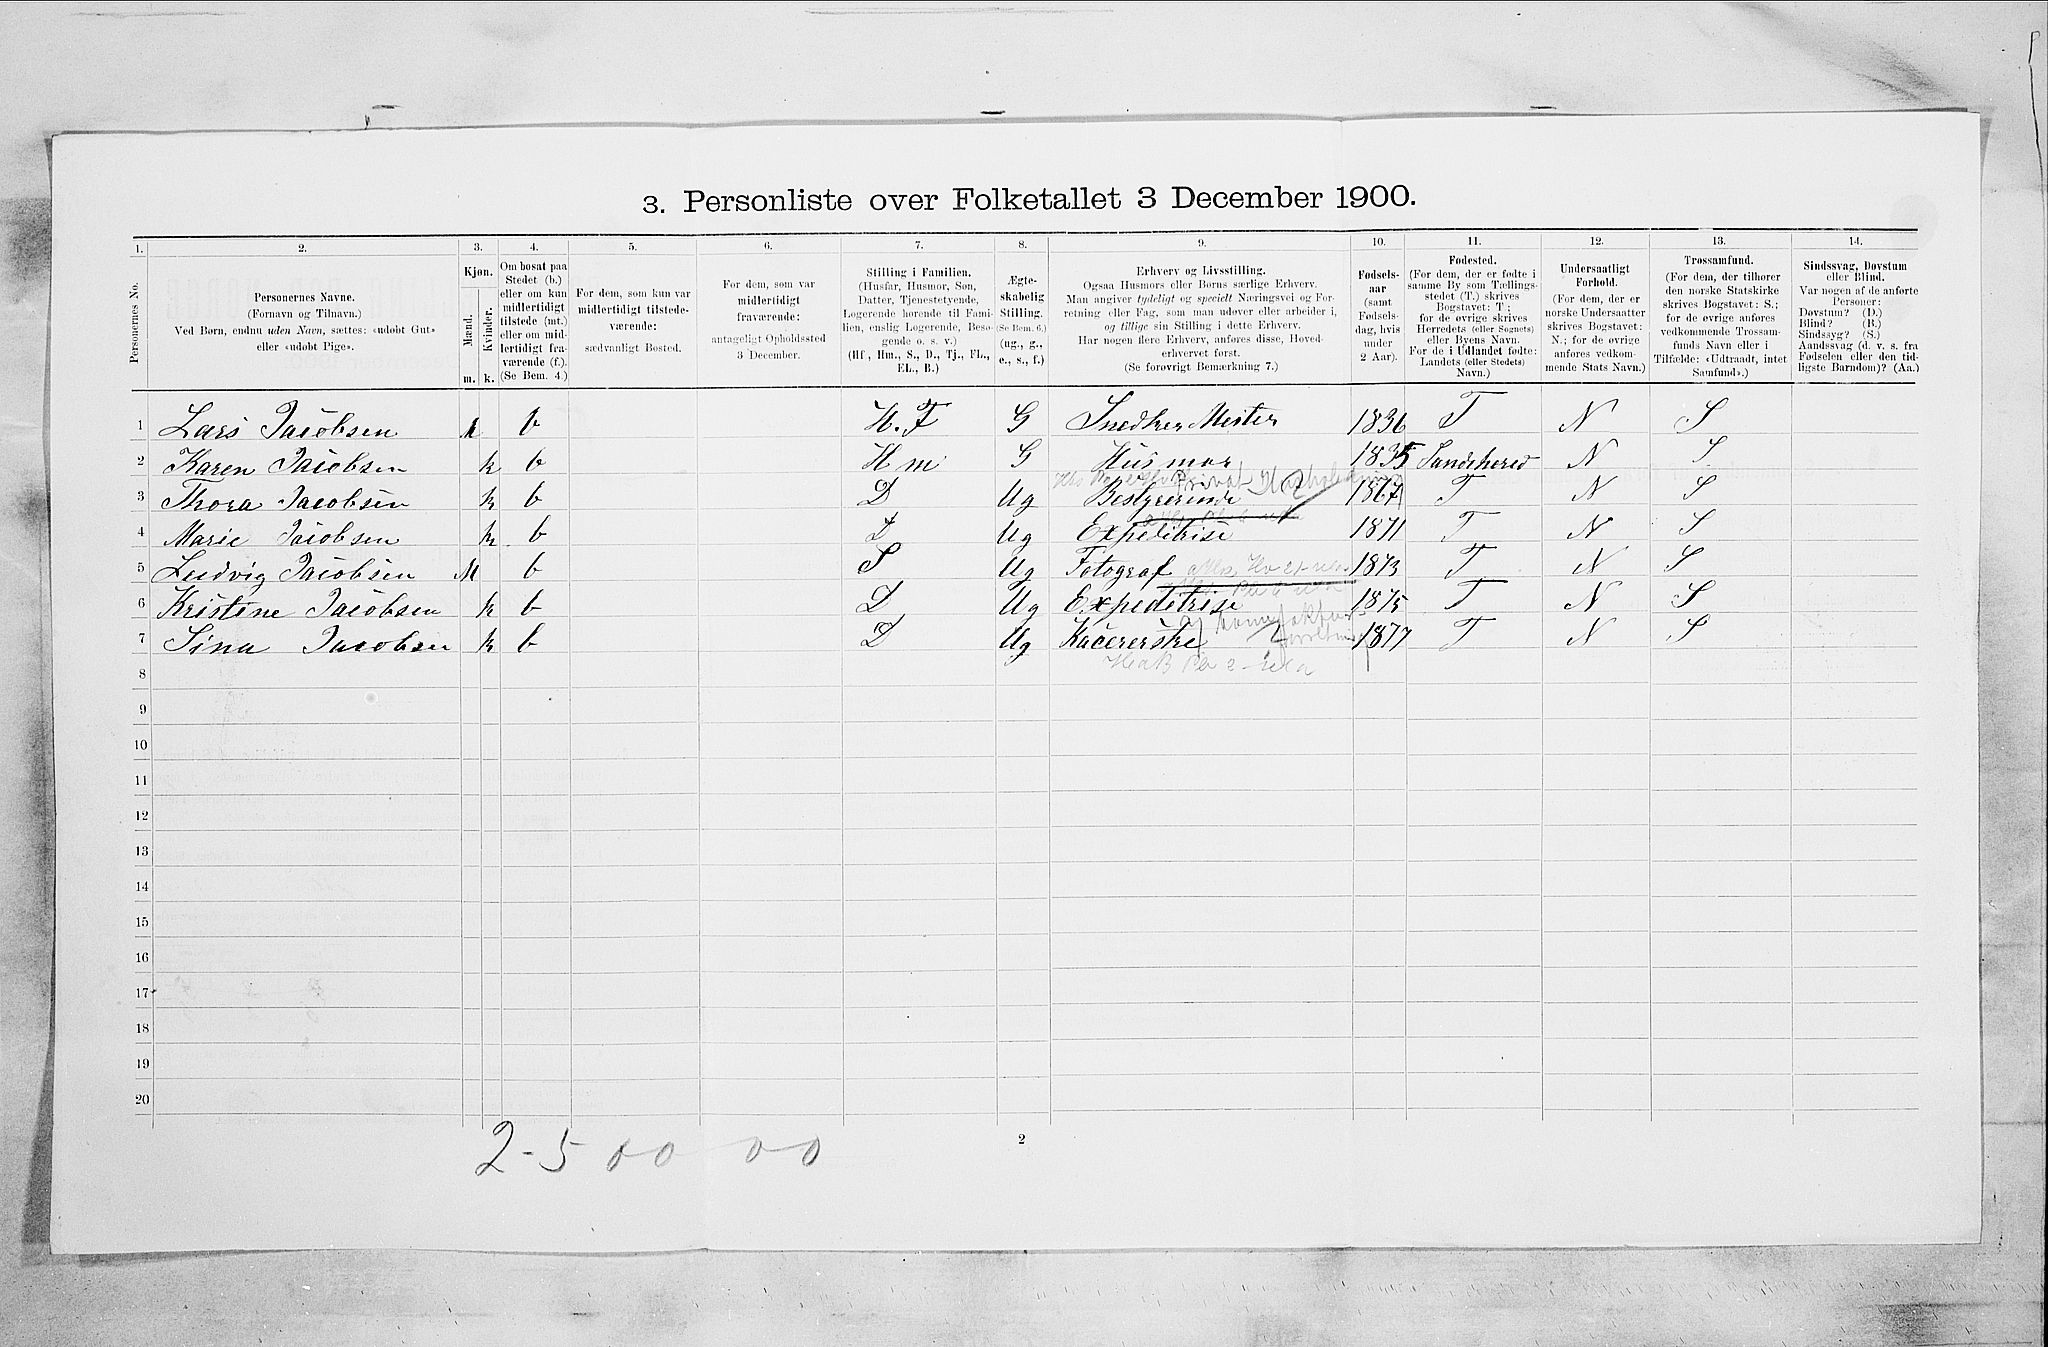 3. Personliste over Folketallet 3 December 1900.
1. 2. 3. 4. 5. 6. 7. 8. 9. 10. 11. 12. 13. 14.
Personernes No.
Personernes Navne.
(Fornavn og Tilnavn.)
Ved Børn, endnu uden Navn, sættes: «udøbt Gut»
eller «udøbt Pige».
Kjøn.
Mænd.
Kvinder.
m. k.
Om bosat paa
Stedet (b.)
eller om kun
midlertidigt
tilstede (mt.)
eller om mid-
lertidigt fra-
værende (f.).
(Se Bem. 4.)
For dem, som kun var
midlertidigt tilstede-
værende:
sædvanligt Bosted.
For dem, som var
midlertidigt
fraværende:
antageligt Opholdssted
3 December.
Stilling i Familien.
(Husfar, Husmor, Søn,
Datter, Tjenestetyende,
Logerende hørende til Fami-
lien, enslig Logerende, Besø-
gende o. s. v.)
(Hf., Hm., S., D., Tj., FL.,
EL., B.)
Ægte-
skabelig
Stilling.
(Se Bem. 6.)
(ug., g.,
e., s., f.)
Erhverv og Livsstilling.
Ogsaa Husmors eller Børns særlige Erhverv.
Man angiver tydeligt og specielt Næringsvei og For-
retning eller Fag, som man udøver eller arbeider i,
og tillige sin Stilling i dette Erhverv.
Har nogen flere Erhverv, anføres disse, Hoved-
erhvervet først.
(Se forøvrigt Bemærkning 7.)
Fødsels-
aar
(samt
Fødsels-
dag, hvis
under
2 Aar).
Fødested.
(For dem, der er fødte i
samme By som Tællings-
stedet (T.) skrives
Bogstavet: T.;
for de øvrige skrives
Herredets (eller Sognets)
eller Byens Navn.
For de i Udlandet fødte:
Landets (eller Stedets)
Navn.)
Undersaatligt
Forhold.
(For dem, der er
norske Undersaatter
skrives Bogstavet:
N.; for de øvrige
anføres vedkom-
mende Stats Navn.)
Trossamfund.
(For dem, der tilhører
den norske Statskirke
skrives Bogstavet: S.;
for de øvrige anføres
vedkommende Trossam-
funds Navn eller i
Tilfælde: «Udtraadt, intet
Samfund».)
Sindssvag, Døvstum
eller Blind.
Var nogen af de anførte
Personer:
Døvstum? (D.)
Blind? (B.)
Sindssyg? (S.)
Aandssvag (d. v. s. fra
Fødselen eller den tid-
ligste Barndom)? (Aa.)
1 Lars Jacobsen M b H.F G Snedker Mester 1836 T N S
2 Karen Jacobsen k b Hm G Husmor 1835 Sandeherred N S
Privat
3 Thora Jacobsen k b D Ug Bestyrerinde 1867 T N S
4 Marie Jacobsen k b D Ug Expeditrise 1871 T N S
5 Ludvig Jacobsen M b S Ug Fotograf 1873 T N S
6 Kristine Jacobsen k b D Ug Expeditrise 1875 T N S
7 Sina Jacobsen k b D Ug Kacererske 1877 T N S
8
9
10
11
12
13
14
15
16
17
18
19
20
2
2-5 00 00